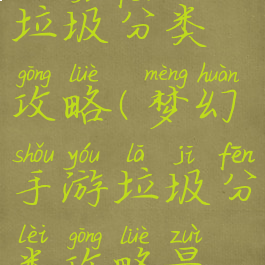 垃圾分类
gōng lüè mèng huàn
攻略(梦幻
shǒu yóu lā jī fēn
手游垃圾分
lèi gōng lüè zuì
类攻略最